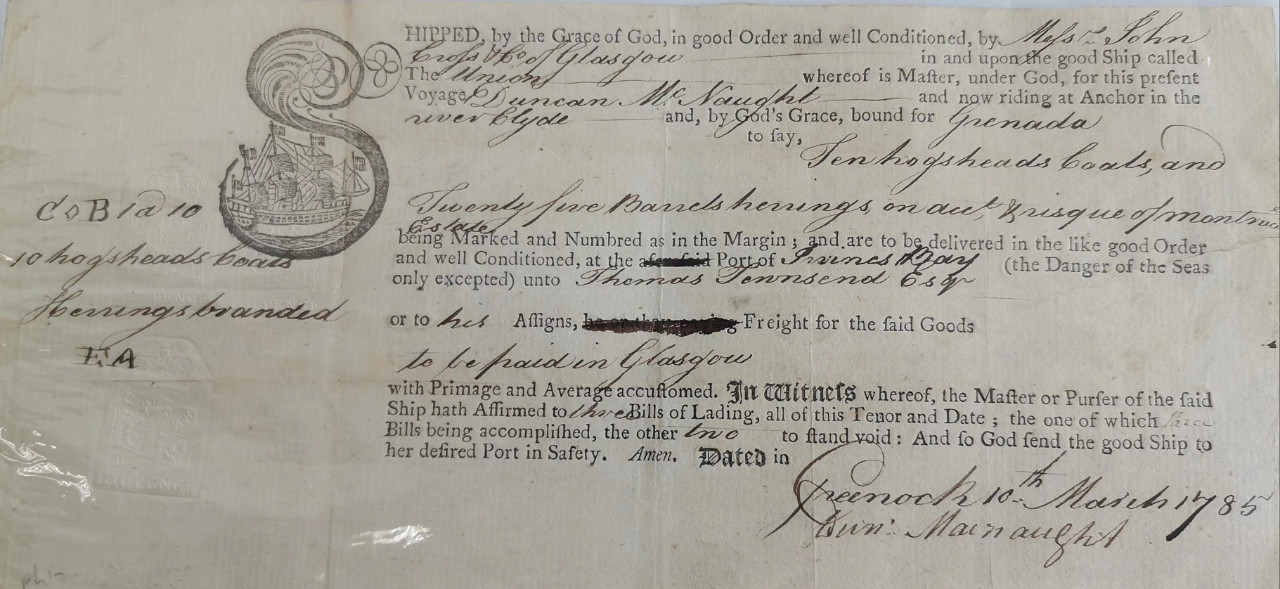 SHIPPED, by the Grace of God, in good Order and well Conditioned, by Meſsrs John
Croſs & Co of Glasgow in and upon the good Ship called
The Union whereof is Maſter, under God, for this preſent
Voyage, Duncan Mc Naught and now riding at Anchor in the
river Clyde and, by God's Grace, bound for Grenada
to ſay,
Ten hogsheads Coals, and
Twenty five Barrels herrings, on acct, & risque of
Estate
being Marked and Numbred as in the Margin; and are to be delivered in the like good Order
and well Conditioned, at the aforeſaid Port of Bay (the Danger of the Seas
only excepted) unto Thomas Townsend Esqr
or to his Aſſigns, Freight for the ſaid Goods
to be paid in Glasgow
with Primage and Average accuſtomed. In Witneſs whereof, the Maſter or Purſer of the ſaid
Ship hath Affirmed to three Bills of Lading, all of this Tenor and Date; the one of which three
Bills being accompliſhed, the other two to ſtand void: And ſo God ſend the good Ship to
her deſired Port in Safety. Amen. Dated in
Greenock 10th March 1785
Dun: Macnaught
C o B 1 a 10
10 hogsheads Coals
Herrings branded
EA